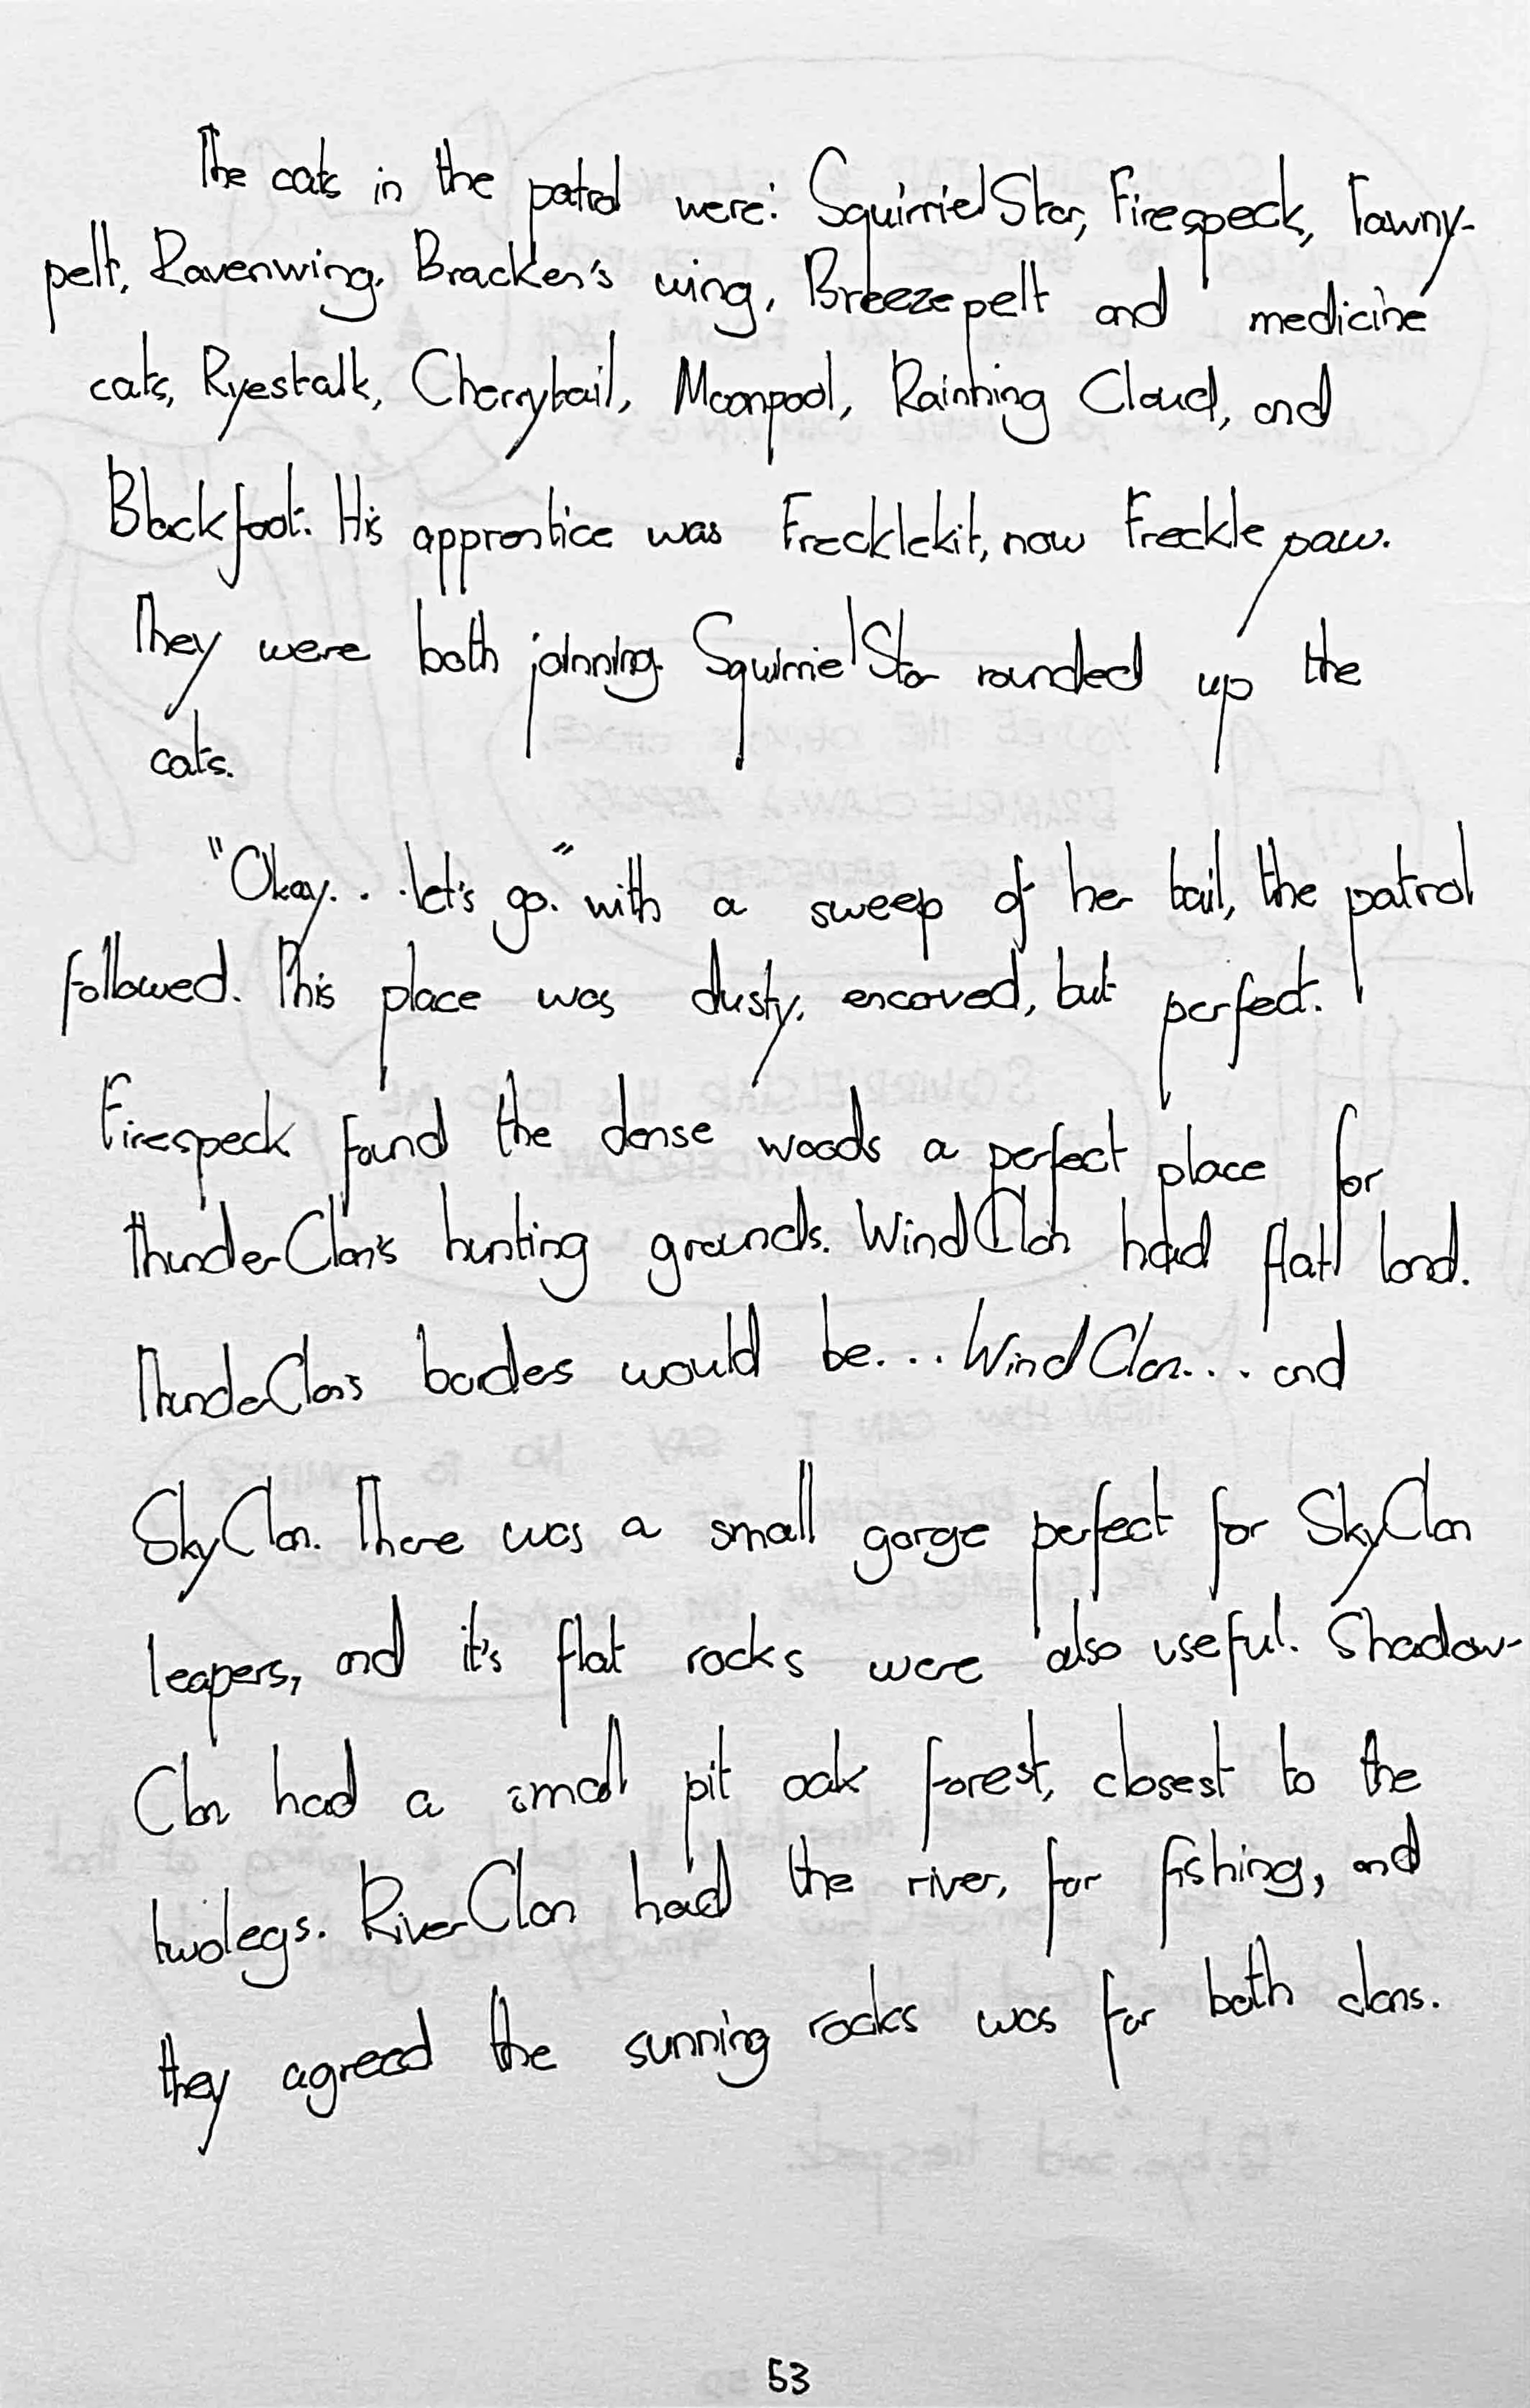 The cats in the patrol were: SquirrielStar, Firespeck, Tawny-
pelt, Ravenwing, Bracken's wing, Breezepelt and medicine
cats, Ryestalk, Cherrytail, Moonpool, Rainning Cloud, and
Blackfoot. His apprentice was Frecklekit, now Frecklepaw.
They were both joinning. SquirrielStar rounded up the
cats.
"Okay... let's go." with a sweep of her tail, the patrol
followed. This place was dusty, encarved, but perfect.
Firespeck found the dense woods a perfect place for
ThunderClan's hunting grounds. WindClan had flat land.
ThunderClan's borders would be... WindClan... and
SkyClan. There was a small gorge perfect for SkyClan
leapers, and it's flat rocks were also useful. Shadow-
Clan had a small pit oak forest, closest to the
twolegs. RiverClan had the river, for fishing, and
they agreed the sunning rocks was for both clans.
53